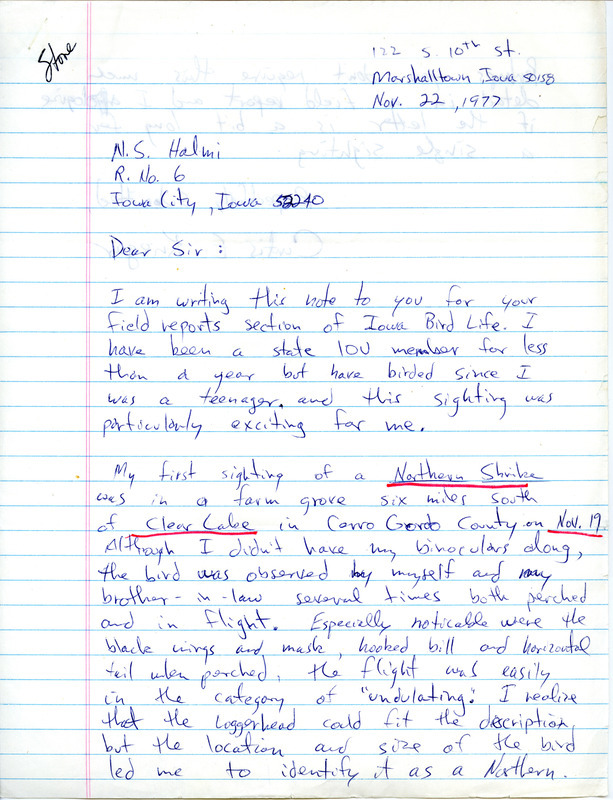 Stone
122 S. 10th St.
Marshalltown, Iowa 50158
Nov. 22, 1977
N.S. Halmi
R. No. 6
Iowa City, Iowa 52240
Dear Sir :
I am writing this note to you for your
field reports section of Iowa Bird Life. I
have been a state IOU member for less
than a year but have birded since I
was a teenager. and this sighting was
particularly exciting for me.
My first sighting of a Northern Shrike
was in a farm grove six miles south
of Clear Lake in Cerro Gordo County on Nov. 19.
Although I didn't have my binoculars along,
the bird was observed by myself and my
brother-in-law several times both perched
and in flight. Especially noticable were the
black wings and mask, hooked bill and horizontal
tail when perched, the flight was easily
in the category of "undulating." I realize
that the Loggerhead could fit the description,
but the location and size of the bird
led me to identify it as a Northern.